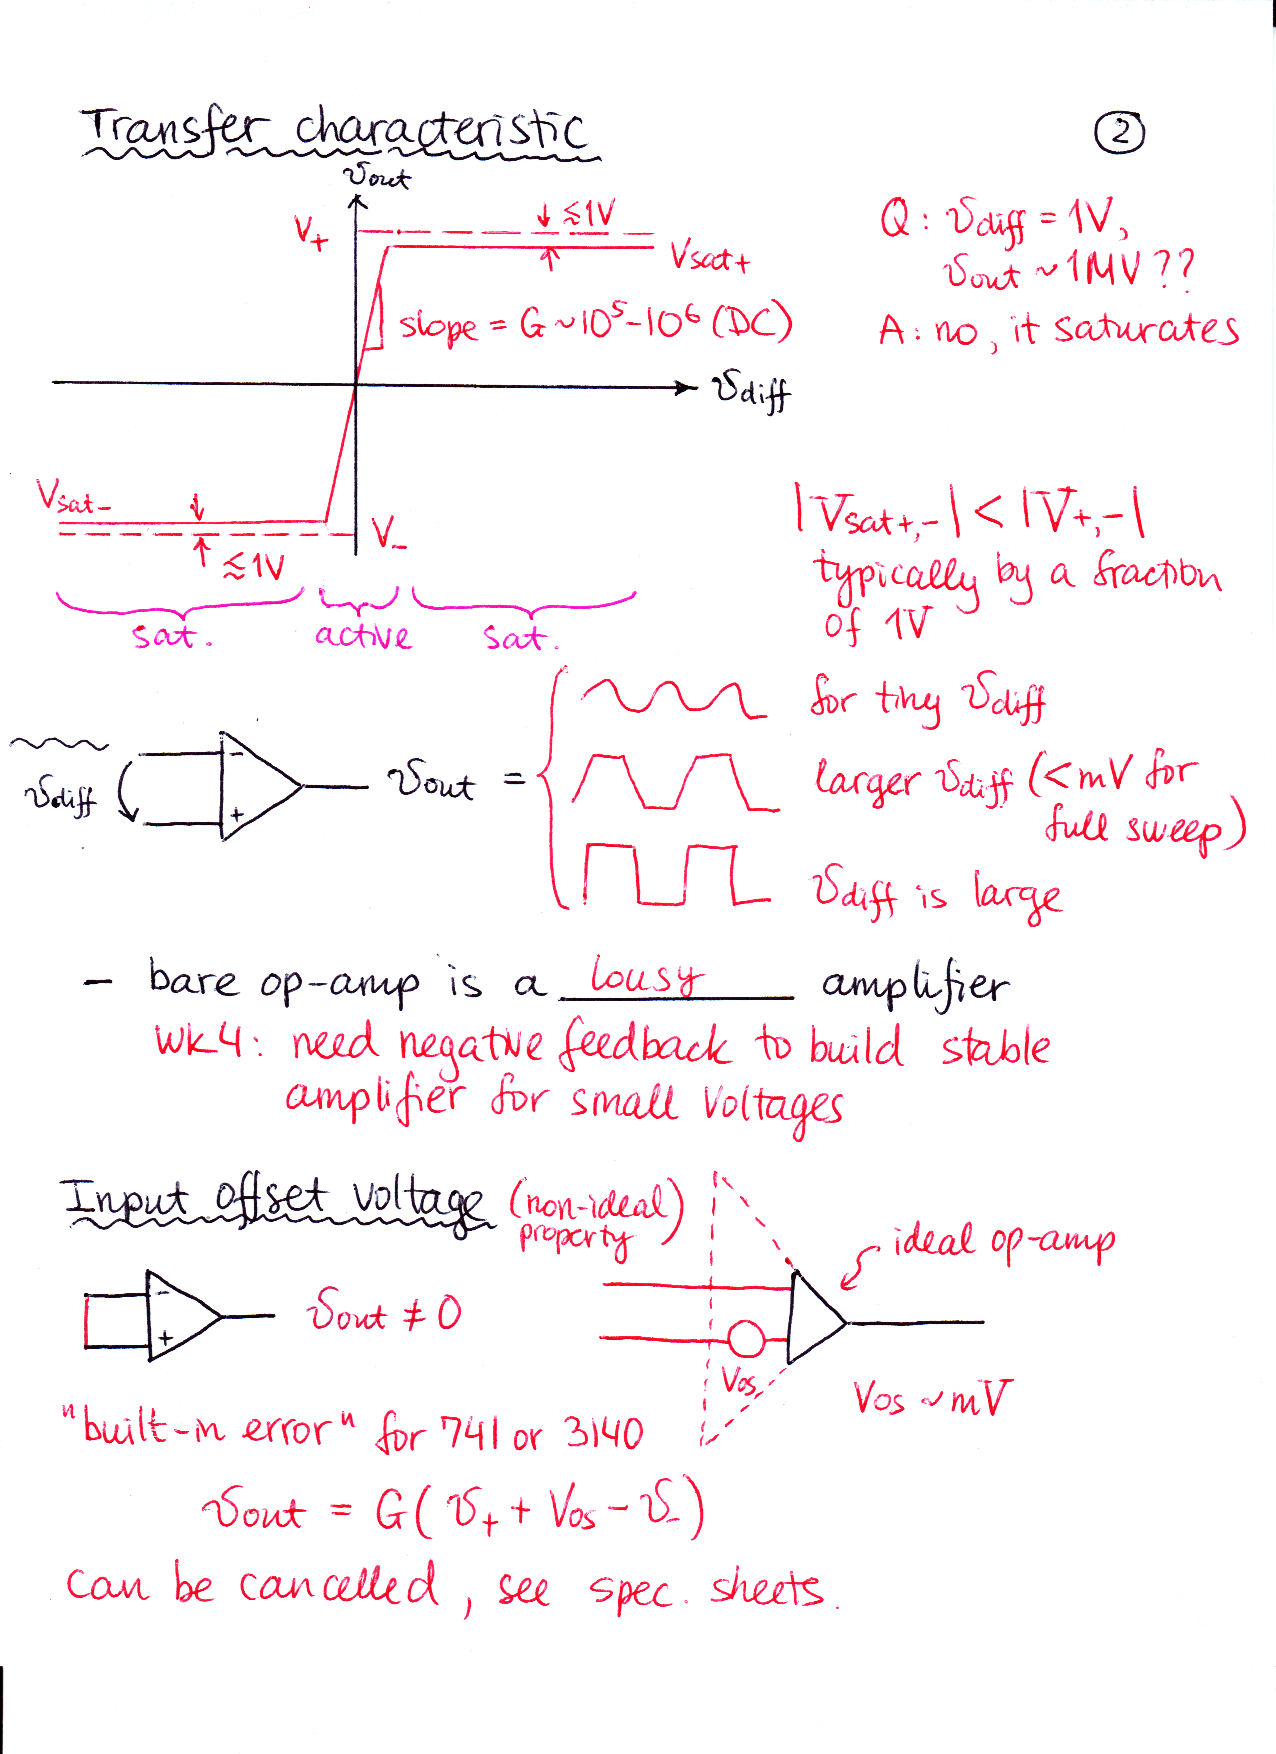 Transfer characteristic
2
vout
V+
≲1V
Vsat+
slope = G ~ 10⁵-10⁶ (DC)
vdiff
Vsat-
V-
≲1V
sat.
active
sat.
Q: vdiff = 1V,
vout ~ 1MV??
A: no, it saturates
|Vsat+,-| < |V+,-|
typically by a fraction
of 1V
vdiff
-
+
vout =
for tiny vdiff
larger vdiff (<mV for
full sweep)
vdiff is large
- bare op-amp is a lousy amplifier
wk4: need negative feedback to build stable
amplifier for small voltages
Input offset voltage (non-ideal)
property
-
+
vout ≠ 0
ideal op-amp
Vos
Vos ~ mV
"built-in error" for 741 or 3140
vout = G( v+ + Vos - v-)
can be cancelled, see spec. sheets.